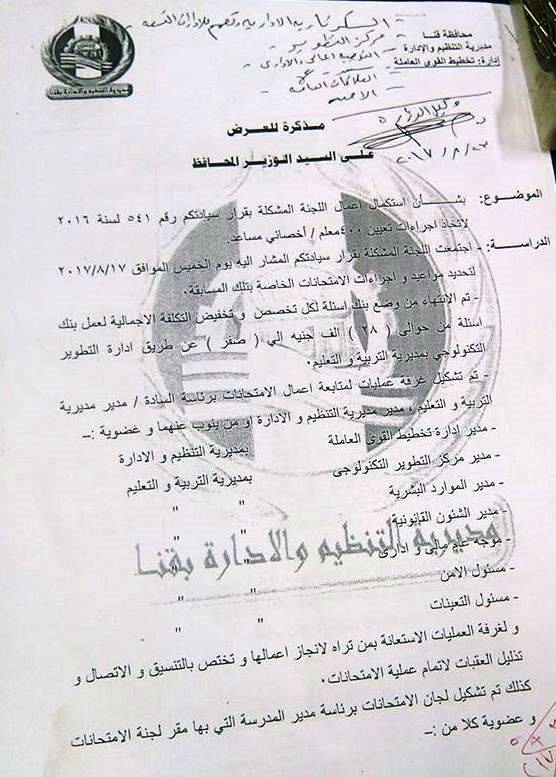 محافظة قنا
مديرية التنظيم والإدارة
إدارة: تخطيط القوى العاملة
مديرية التنظيم والادارة بقنا
مركز التطوير
مذكرة للعرض
على السيد الوزير المحافظ
الموضوع: بشأن استكمال اعمال اللجنة المشكلة بقرار سيادتكم رقم ٥٤١ لسنة ٢٠١٦
لاتخاذ اجراءات تعيين ٤٠٠ معلم / أخصائي مساعد.
الدراسة: - اجتمعت اللجنة المشكلة بقرار سيادتكم المشار اليه يوم الخميس الموافق ٢٠١٧/٨/١٧
لتحديد مواعيد و اجراءات الامتحانات الخاصة بتلك المسابقة.
- تم الإنتهاء من وضع بنك اسئلة لكل تخصص و تخفيض التكلفة الاجمالية لعمل بنك
اسئلة من حوالى ( ٢٨ ) الف جنيه الي ( صفر ) عن طريق ادارة التطوير
التكنولوجي بمديرية التربية و التعليم.
- تم تشكيل غرفة عمليات لمتابعة اعمال الامتحانات برئاسة السادة / مدير مديرية
التربية و التعليم ، مدير مديرية التنظيم و الادارة او من ينوب عنهما و عضوية :ــ
- مدير إدارة تخطيط القوى العاملة بمديرية التنظيم و الادارة
- مدير مركز التطوير التكنولوجى بمديرية التربية و التعليم
- مدير الموارد البشرية " "
- مدير الشئون القانونية " "
- موجه عام مالى و ادارى " "
مديرية التنظيم والادارة بقنا
- مسئول الامن " "
- مسئول التعينات " "
و لغرفة العمليات الاستعانة بمن تراه لانجاز اعمالها و تختص بالتنسيق و الاتصال و
تذليل العقبات لاتمام عملية الامتحانات.
كذلك تم تشكيل لجان الامتحانات برئاسة مدير المدرسة التي بها مقر لجنة الامتحانات
و عضوية كلا من :ــ